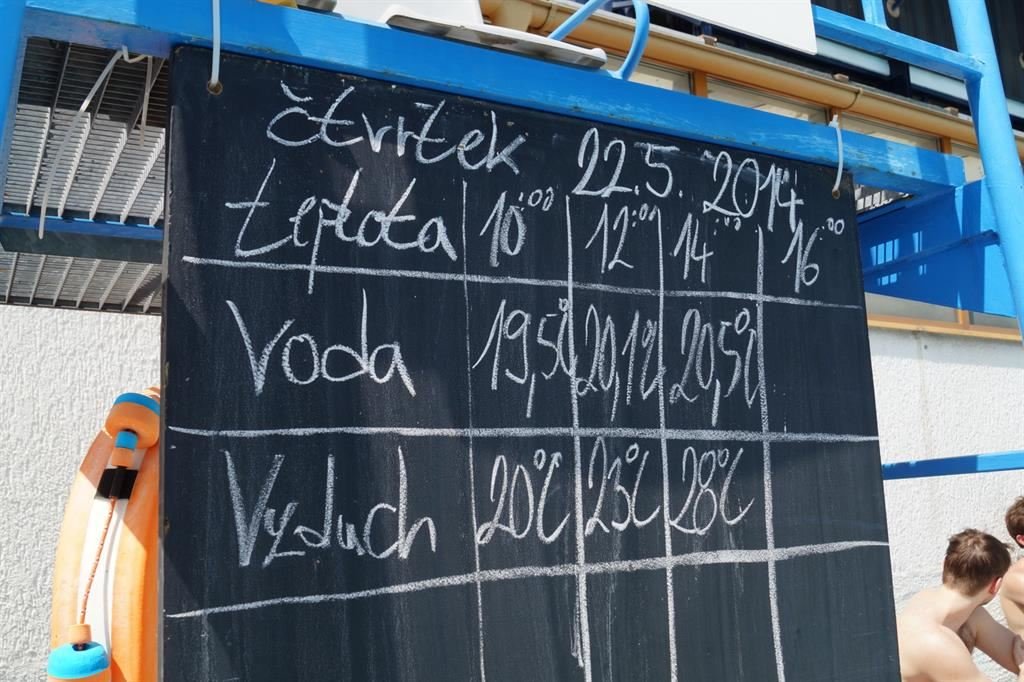 čtvrtek 22.5. 2014
teplota 10:00 12:00 14:00 16:00
Voda 19,5°C 20,1°C 20,5°C
Vzduch 20°C 23°C 28°C